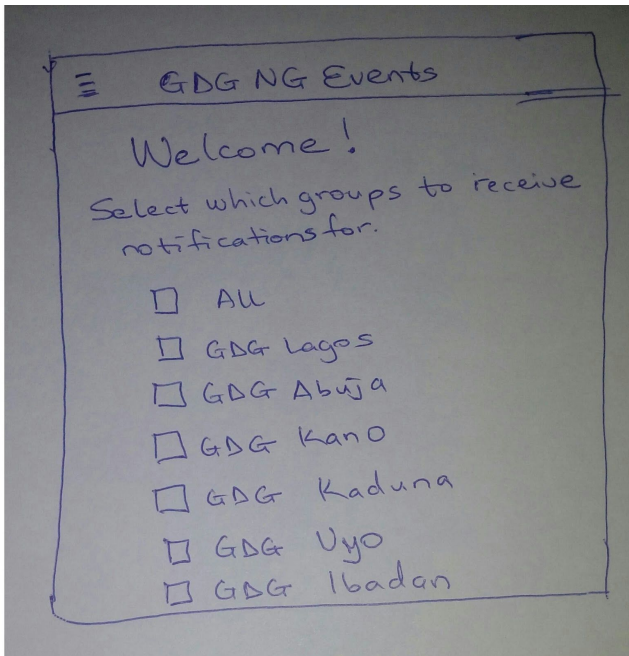 GDG NG Events
Welcome!
Select which groups to receive
notifications for.
All
GDG Lagos
GDG Abuja
GDG Kano
GDG Kaduna
GDG Uyo
GDG Ibadan